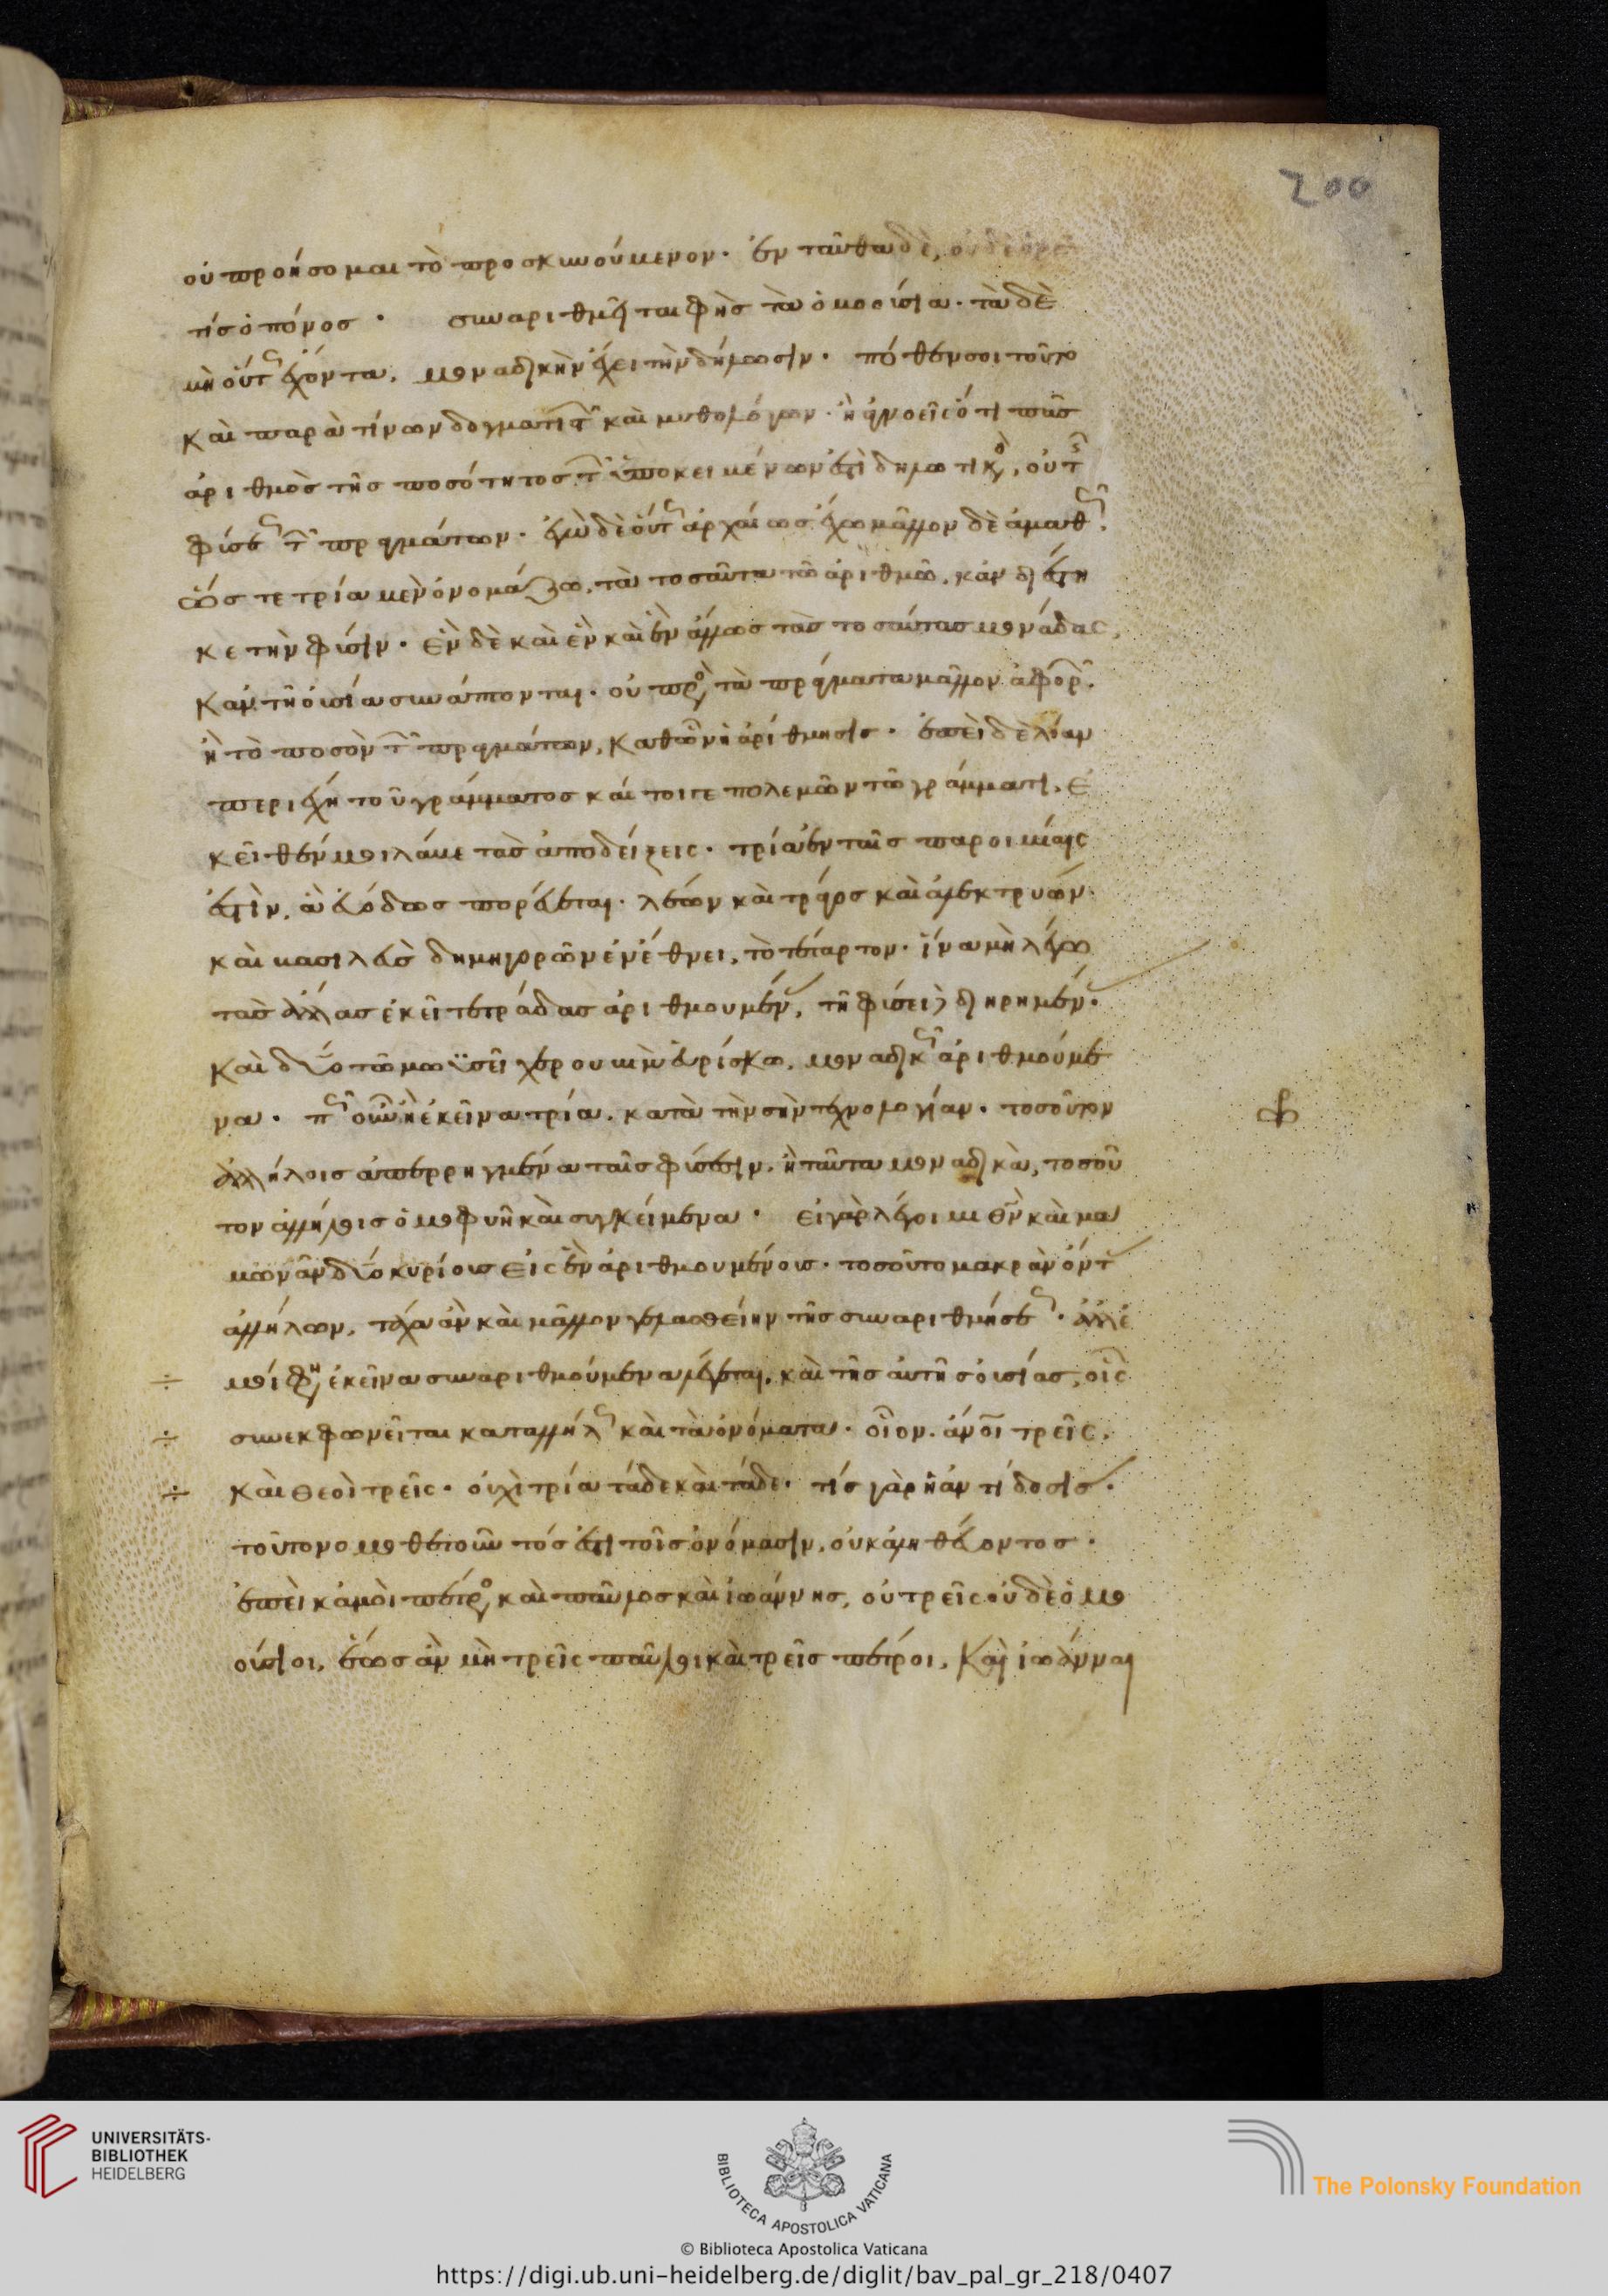 200
οὐ προήσομαι τὸ προσκυνούμενον· ἐν ταῦθα δὲ, οὐδὲ ὁρᾶ
τίς ὁ πόνος· συναριθμεῖται φὴς τὰ ὁμοούσια· τὰ δὲ
μὴ οὕτως ἔχοντα, μοναδικὴν ἔχει τὴν δήλωσιν· πόθεν σοι τοῦτο
καὶ παρὰ τίνων δογματιστῶν καὶ μυθολόγων· ἢ ἀγνοεῖς ὅτι πᾶς
ἀριθμὸς τῆς ποσότητος τῶν ὑποκειμένων ἐστὶ δηλωτικὸς, οὐ τῆς
φύσεως τῶν πραγμάτων· ἐγὼ δὲ οὕτως ἀρχαίως ἔχω μᾶλλον δὲ ἀμαθῶς·
ὥς τε τρία μὲν ὀνομάζω, τὰ τοσαῦτα τῶ ἀριθμῶ, κἂν διέστη
κε τὴν φύσιν· ἓν δὲ καὶ ἓν καὶ ἓν ἄλλως τὰς τοσαύτας μονάδας,
κἂν τῆ οὐσία συνάπτονται· οὐ πρὸς τὰ πράγματα μᾶλλον ἀφορῶν·
ἢ τὸ ποσὸν τῶν πραγμάτων, καθ ὧν ἡ ἀρίθμησις· ἐπεὶ δὲ λίαν
περιέχη τοῦ γράμματος καί τοι τε πολεμῶν τῶ γράμματι, ἐ
κεῖθέν μοι λάβε τὰς ἀποδείξεις· τρία ἐν ταῖς παροιμίαις
ἐστὶν, ἃ εὐόδως πορεύεται· λέων καὶ τράγος καὶ ἀλεκτρυών·
καὶ βασιλεὺς δημηγορῶν ἐν ἔθνει, τὸ τέταρτον· ἵνα μὴ λέγω
τὰς ἄλλας ἐκεῖ τετράδας ἀριθμουμένας, τῆ φύσει διηρημένας·
καὶ δύο τῶ μωϋσεῖ χερουβὶμ εὑρίσκω, μοναδικῶς ἀριθμούμε
να· πῶς οὖν ἢ ἐκεῖνα τρία, κατὰ τὴν σὴν τεχνολογίαν· τοσοῦτον
ἀλλήλοις ἀπερρηγμένα ταῖς φύσεσιν, ἢ ταῦτα μοναδικὰ, τοσοῦ
τον ἀλλήλοις ὁμοφυῆ καὶ συγκείμενα· εἰ γὰρ λέγοιμι θν καὶ μα
μωνᾶν δύο κυρίους εἰς ἓν ἀριθμουμένους· τοσοῦτο μακρὰν ὄντας
ἀλλήλων, τάχα ἂν καὶ μᾶλλον γελασθείην τῆς συναριθμήσεως· ἀλλ ἐ
μοί φησιν ἐκεῖνα συναριθμούμενα λέγεται, καὶ τῆς αὐτῆς οὐσίας, οἷς
συνεκφωνεῖται καταλλήλως καὶ τὰ ὀνόματα· οἷον· ἄνοι τρεῖς,
καὶ θεοὶ τρεῖς· οὐχὶ τρία τάδε καὶ τάδε· τίς γὰρ ἡ ἀντίδοσις·
τοῦτο νομοθετοῦντός ἐστι τοῖς ὀνόμασιν, οὐκ ἀληθεύοντος·
ἐπεὶ κἀμοὶ πέτρος καὶ παῦλος καὶ ἰωάννης, οὐ τρεῖς οὐδὲ ὁμο
ούσιοι, ἕως ἂν μὴ τρεῖς παῦλοι καὶ τρεῖς πέτροι, καὶ ἰωάνναι
UNIVERSITÄTS-
BIBLIOTHEK
HEIDELBERG
BIBLIOTECA APOSTOLICA VATICANA
The Polonsky Foundation
© Biblioteca Apostolica Vaticana
https://digi.ub.uni-heidelberg.de/diglit/bav_pal_gr_218/0407